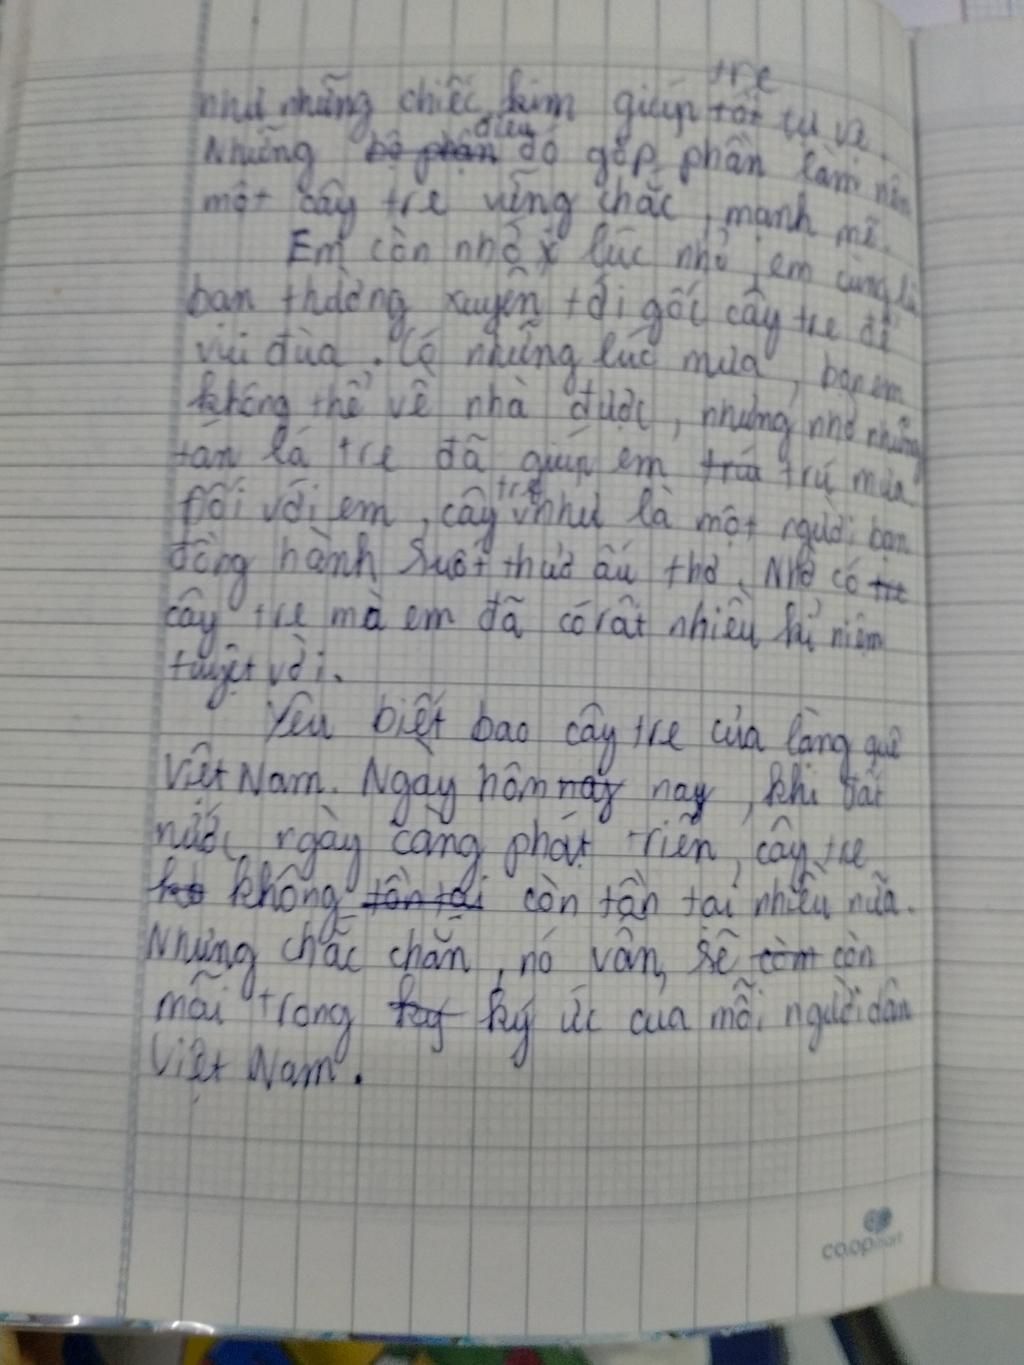 như những chiếc kim giúp tre tự vệ.
Những điều đó góp phần làm nên
một cây tre vững chắc, mạnh mẽ.
Em còn nhớ lúc nhỏ, em cùng lũ
bạn thường xuyên tới gốc cây tre để
vui đùa. Có những lúc mưa, bạn em
không thể về nhà được, nhưng nhờ những
tán lá tre đã giúp em trú mưa
Đối với em, cây tre như là một người bạn
đồng hành suốt thuở ấu thơ. Nhờ có
cây tre mà em đã có rất nhiều kỉ niệm
tuyệt vời.
Yêu biết bao cây tre của làng quê
Việt Nam. Ngày hôm nay, khi đất
nước ngày càng phát triển, cây tre
không còn tồn tại nhiều nữa.
Nhưng chắc chắn, nó vẫn sẽ còn
mãi trong ký ức của mỗi người dân
Việt Nam.
co.opmart